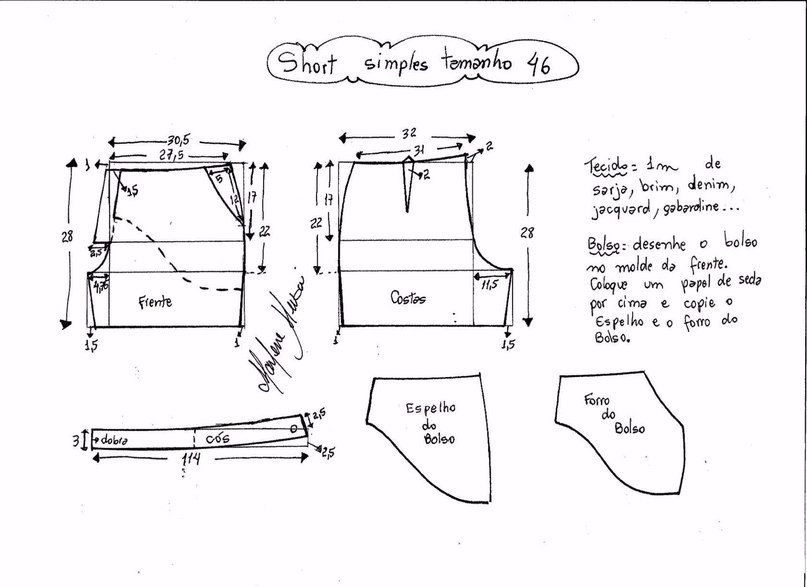 Short simples tamanho 46
30,5
27,5
1
1,5
5
12
17
22
28
2,5
4,75
Frente
1,5
1
32
31
2
2
17
22
28
Costas
11,5
1
1,5
Tecido: 1m de
sarja, brim, denim,
jacquard, gabardine...
Bolso: desenhe o bolso
no molde da frente.
Coloque um papel de seda
por cima e copie o
Espelho e o forro do
Bolso.
Marlene Mukai
3
dobra
cós
2,5
2,5
114
Espelho
do
Bolso
Forro
do
Bolso